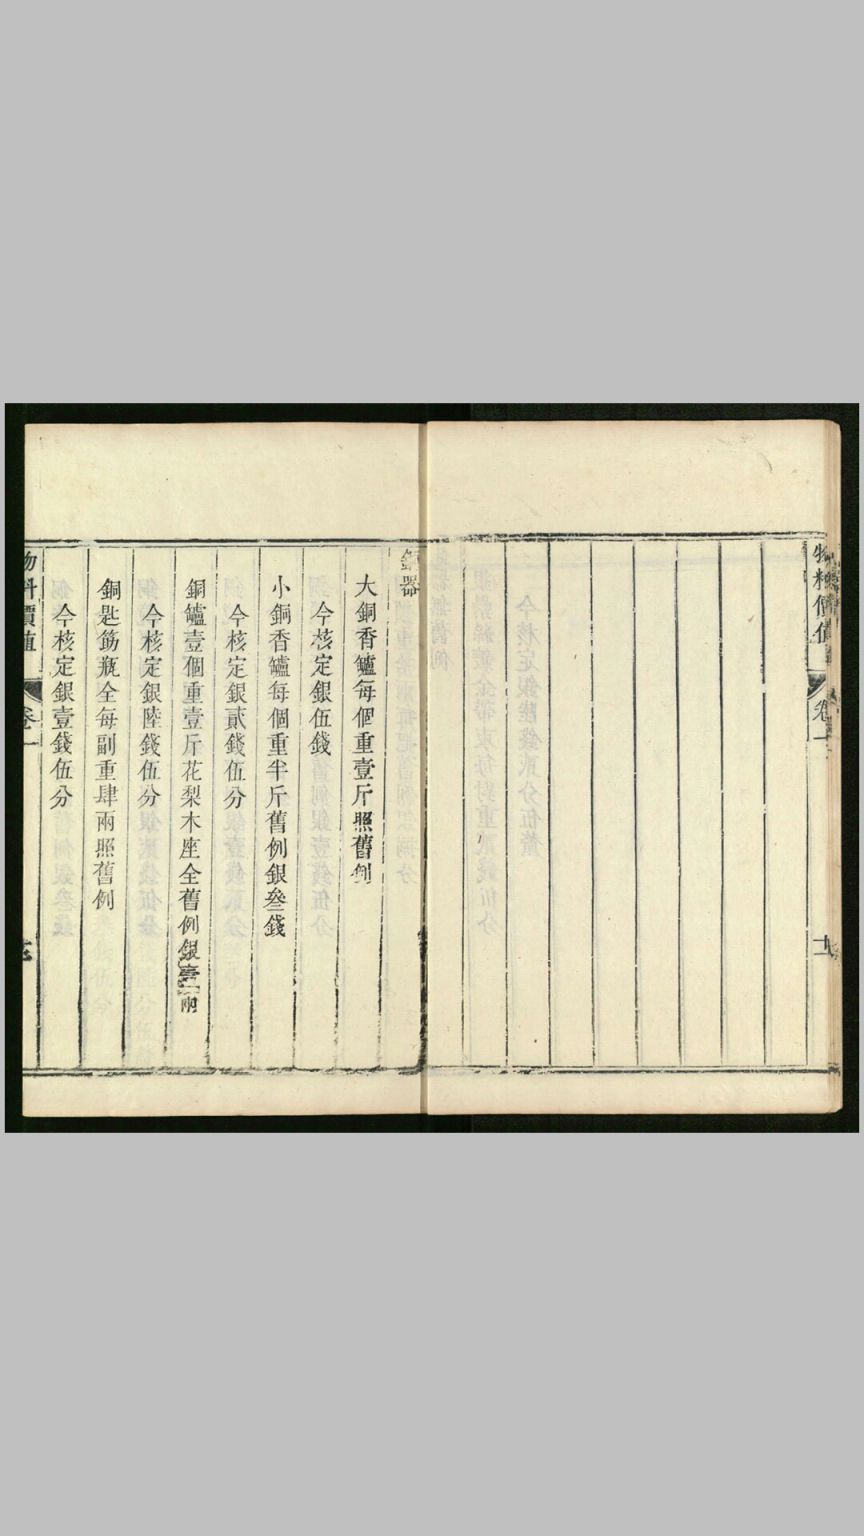 物料價值
卷一
銅器
大銅香罏每個重壹斤照舊例
今核定銀伍錢
小銅香罏每個重半斤舊例銀叄錢
今核定銀貳錢伍分
銅罏壹個重壹斤花梨木座全舊例銀壹兩
今核定銀陸錢伍分
銅匙筯瓶全每副重肆兩照舊例
今核定銀壹錢伍分
物料價值
卷一